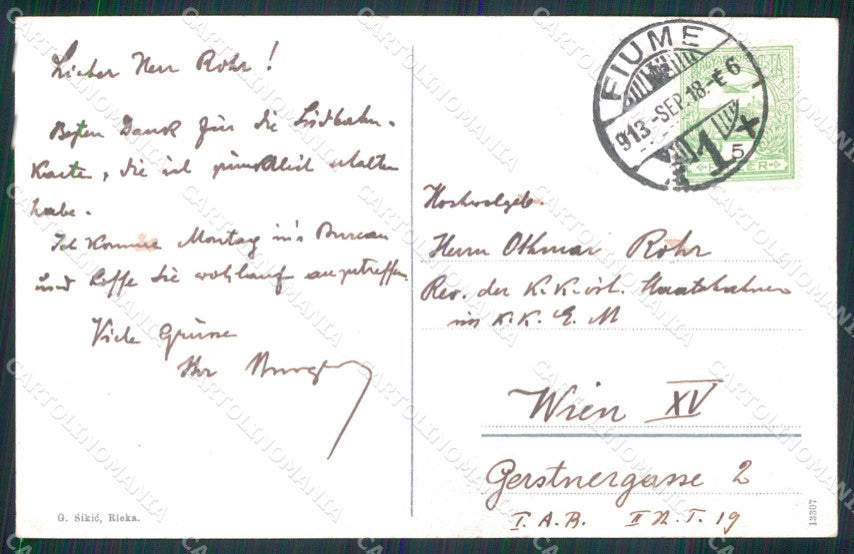 Lieber Herr Rohr!
Besten Dank für die Südbahn-
Karte, die ich pünktlich erhalten
habe.
Ich komme Montag in's Bureau
und hoffe Sie wohlauf anzutreffen.
Viele Grüsse
Ihr
G. Sikić, Rieka.
FIUME
913 -SEP.18.-E 6
1
5
FILLER
Hochwolgeb.
Herrn Othmar Rohr
Rev. der K.K. öst. Staatsbahnen
im K.K. E. M
Wien XV
Gerstnergasse 2
I. A. R. II N. T. 19
13307
CARTOLINOMANIA